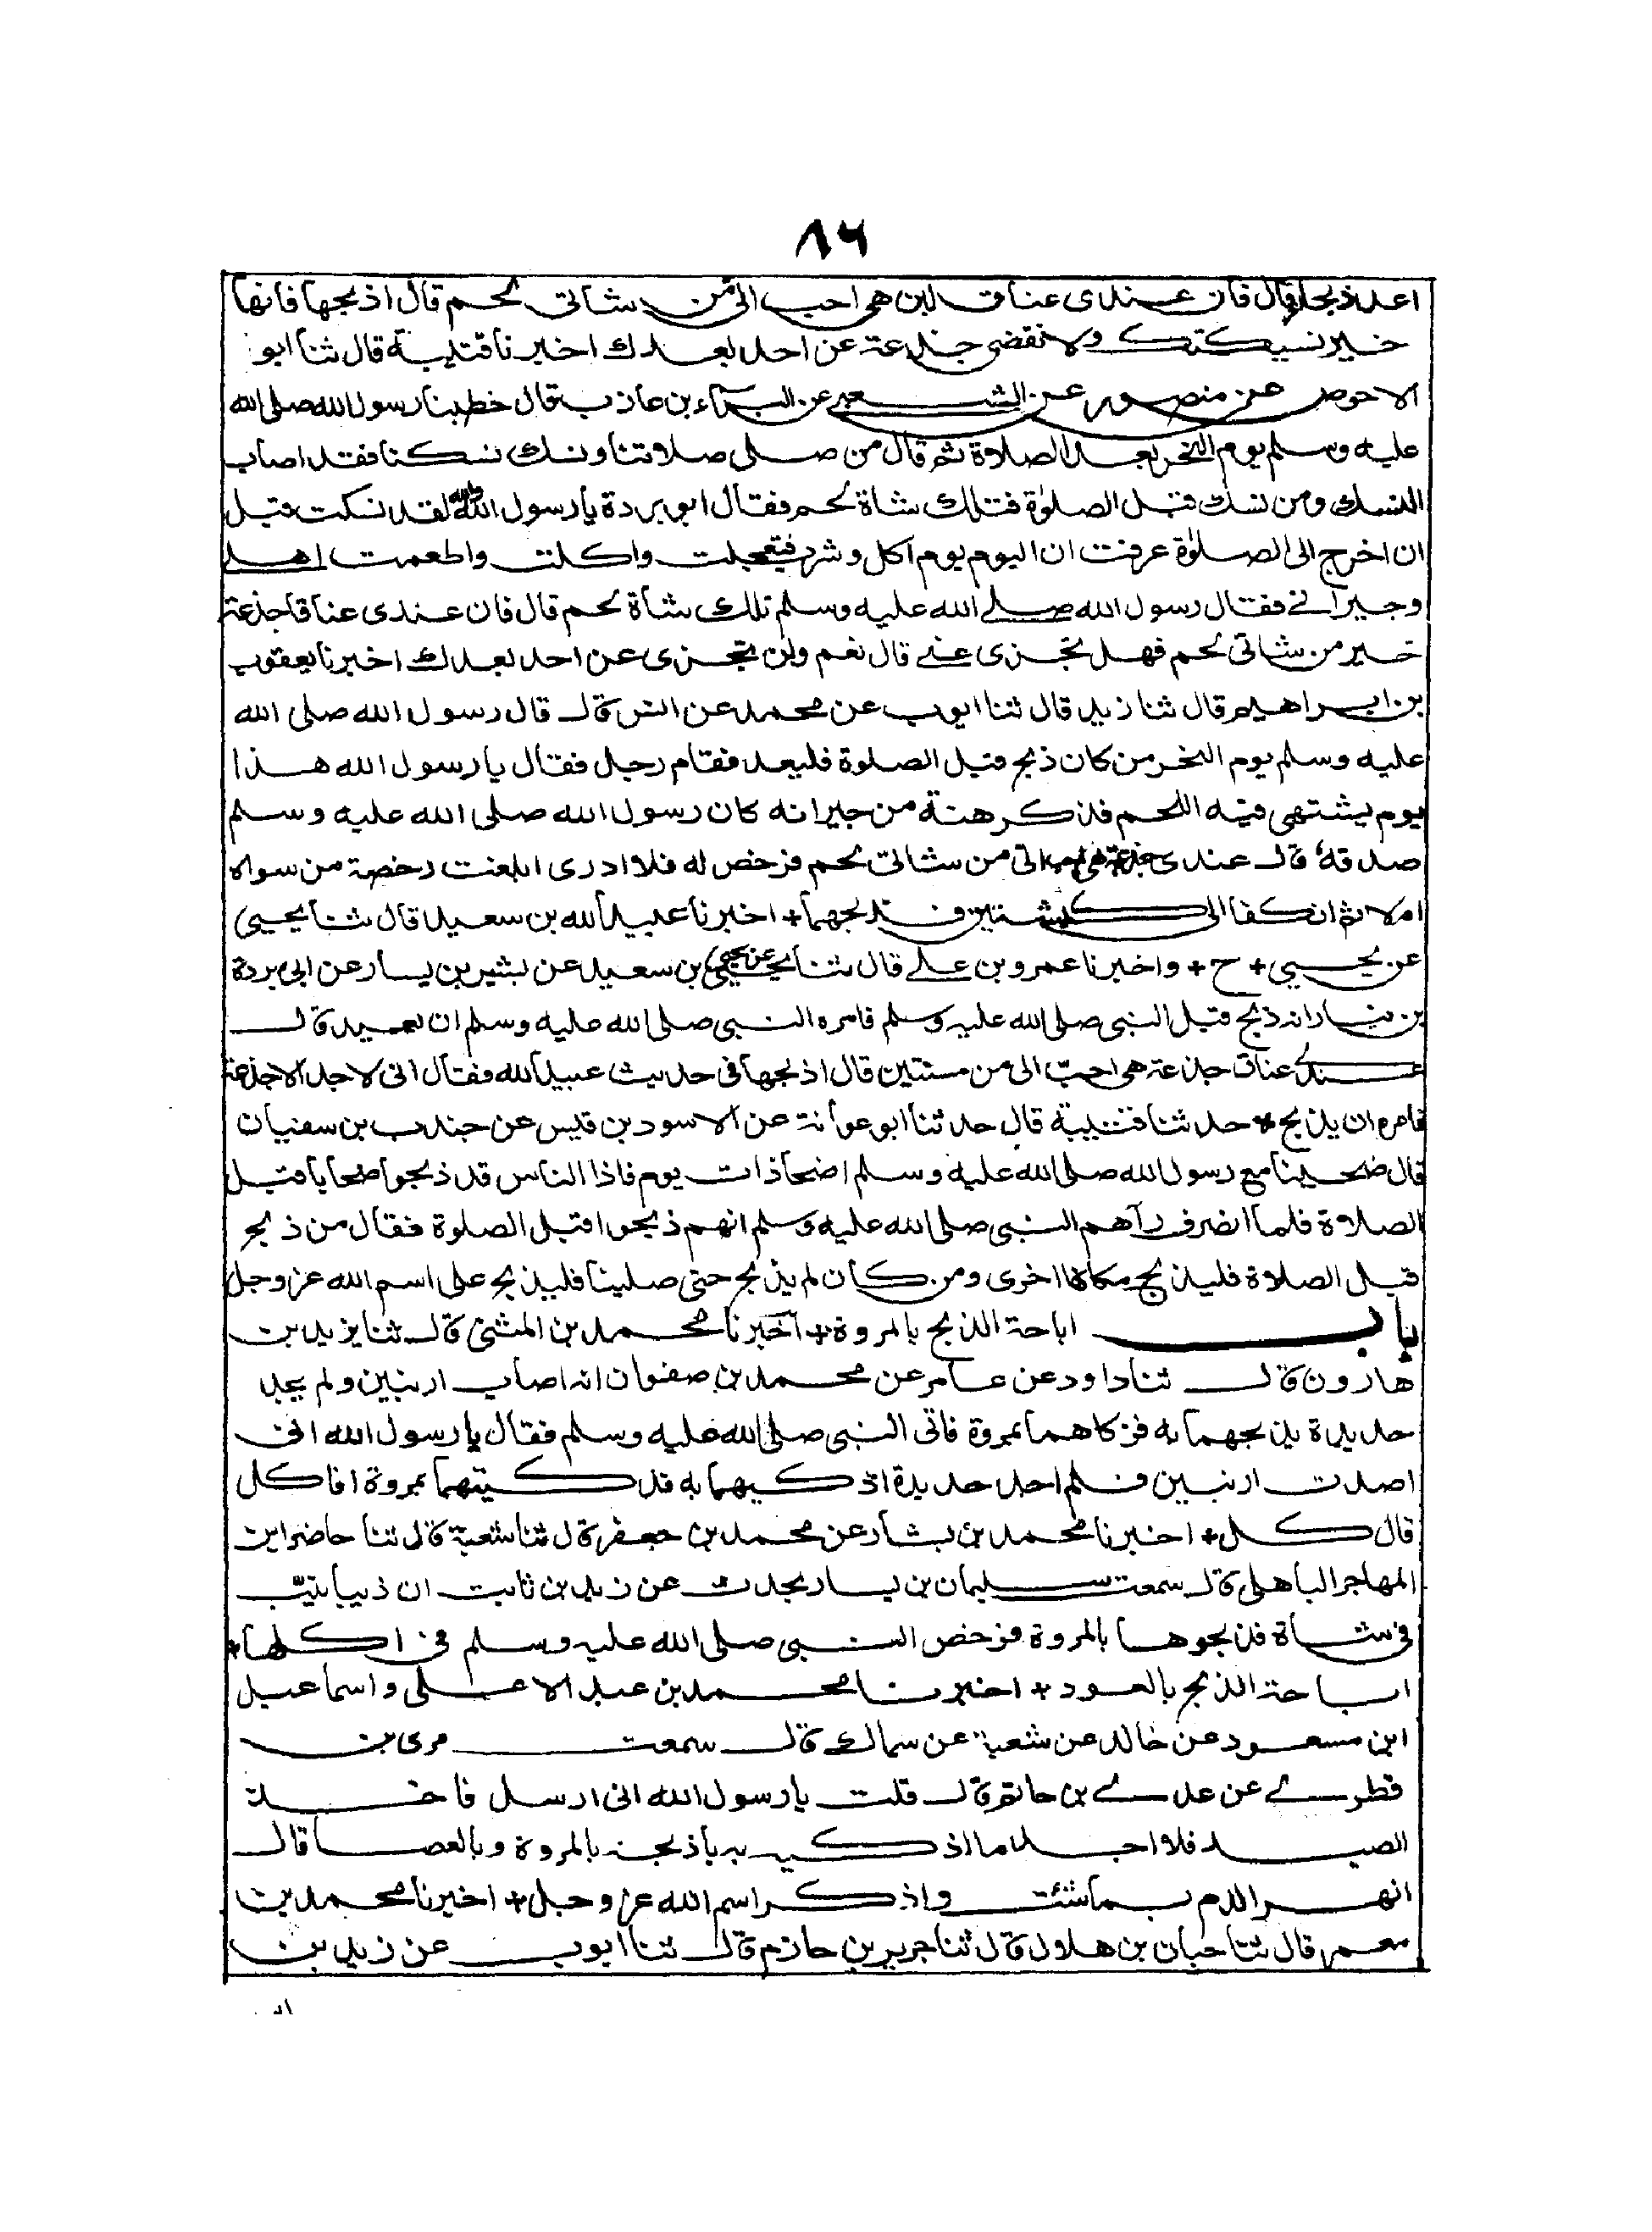 ٨٦
اعد ذبحا قال فان عندى عناق لبن هى احب الى من شاتى لحم قال اذبحها فانها
خير نسيكتك ولا تقضى جذعة عن احد بعدك اخبرنا قتيبة قال ثنا ابو
الاحوص عن منصور عن الشعبى عن البراء بن عازب قال خطبنا رسول الله صلى الله
عليه وسلم يوم النحر بعد الصلاة ثم قال من صلى صلاتنا ونسك نسكنا فقد اصاب
النسك ومن نسك قبل الصلوٰة فتلك شاة لحم فقال ابو بردة يا رسول الله والله لقد نسكت قبل
ان اخرج الى الصلوٰة عرفت ان اليوم يوم اكل وشرب فتعجلت واكلت واطعمت اهلى
وجيرانى فقال رسول الله صلى الله عليه وسلم تلك شاة لحم قال فان عندى عناقا جذعة
خير من شاتى لحم فهل تجزى عنى قال نعم ولن تجزى عن احد بعدك اخبرنا يعقوب
بن ابراهيم قال ثنا زيد قال ثنا ايوب عن محمد عن انس قال قال رسول الله صلى الله
عليه وسلم يوم النحر من كان ذبح قبل الصلوة فليعد فقام رجل فقال يا رسول الله هذا
يوم يشتهى فيه اللحم فذكر هنة من جيرانه كان رسول الله صلى الله عليه وسلم
صدقه قال عندى جذعة هى احب الى من شاتى لحم فرخص له فلا ادرى ابلغت رخصة من سواه
ام لا ثم انكفا الى كبشين فذبحهما + اخبرنا عبيد الله بن سعيد قال ثنا يحيى
عن يحيى + ح + واخبرنا عمرو بن على قال ثنا يحيى عن يحيى بن سعيد عن بشير بن يسار عن ابى بردة
بن نيار انه ذبح قبل النبى صلى الله عليه وسلم فامره النبى صلى الله عليه وسلم ان يعيد قال
عندى عناق جذعة هى احبّ الى من مسنتين قال اذبحها فى حديث عبيد الله فقال انى لا اجد الا جذعة
فامره ان يذبح + حدثنا قتيبة قال حدثنا ابو عوانة عن الاسود بن قيس عن جندب بن سفيان
قال ضحينا مع رسول الله صلى الله عليه وسلم اضحا ذات يوم فاذا الناس قد ذبحوا ضحايا قبل
الصلاة فلما انصرف رآهم النبى صلى الله عليه وسلم انهم ذبحوا قبل الصلوة فقال من ذبح
قبل الصلاة فليذبح مكانها اخرى ومن كان لم يذبح حتى صلينا فليذبح على اسم الله عز وجل
باب اباحة الذبح بالمروة + اخبرنا محمد بن المثنى قال ثنا يزيد بن
هارون قال ثنا داود عن عامر عن محمد بن صفوان انه اصاب ارنبين ولم يجد
حديدة يذبحهما به فزكاهما بمروة فاتى النبى صلى الله عليه وسلم فقال يا رسول الله انى
اصدت ارنبين فلم اجد حديدة اذكيهما به فذكيتهما بمروة افاكل
قال كل + اخبرنا محمد بن بشار عن محمد بن جعفر قال ثنا شعبة قال ثنا حاضر ابن
المهاجر الباهلى قال سمعت سليمان بن يسار يحدث عن زيد بن ثابت ان ذيبا نيّب
فى شاة فذبحوها بالمروة فرخص النبى صلى الله عليه وسلم فى اكلها +
اباحة الذبح بالعود + اخبرنا محمد بن عبد الاعلى واسماعيل
ابن مسعود عن خالد عن شعبة عن سماك قال سمعت مرى بن
قطرى عن عدى بن حاتم قال قلت يا رسول الله انى ارسل فاخذ
الصيد فلا اجد ما اذكيه به باذبحه بالمروة وبالعصا قال
انهر الدم بما شئت واذكر اسم الله عز وجل + اخبرنا محمد بن
معمر قال ثنا حبان بن هلال قال ثنا جرير بن حازم قال ثنا ايوب عن زيد بن